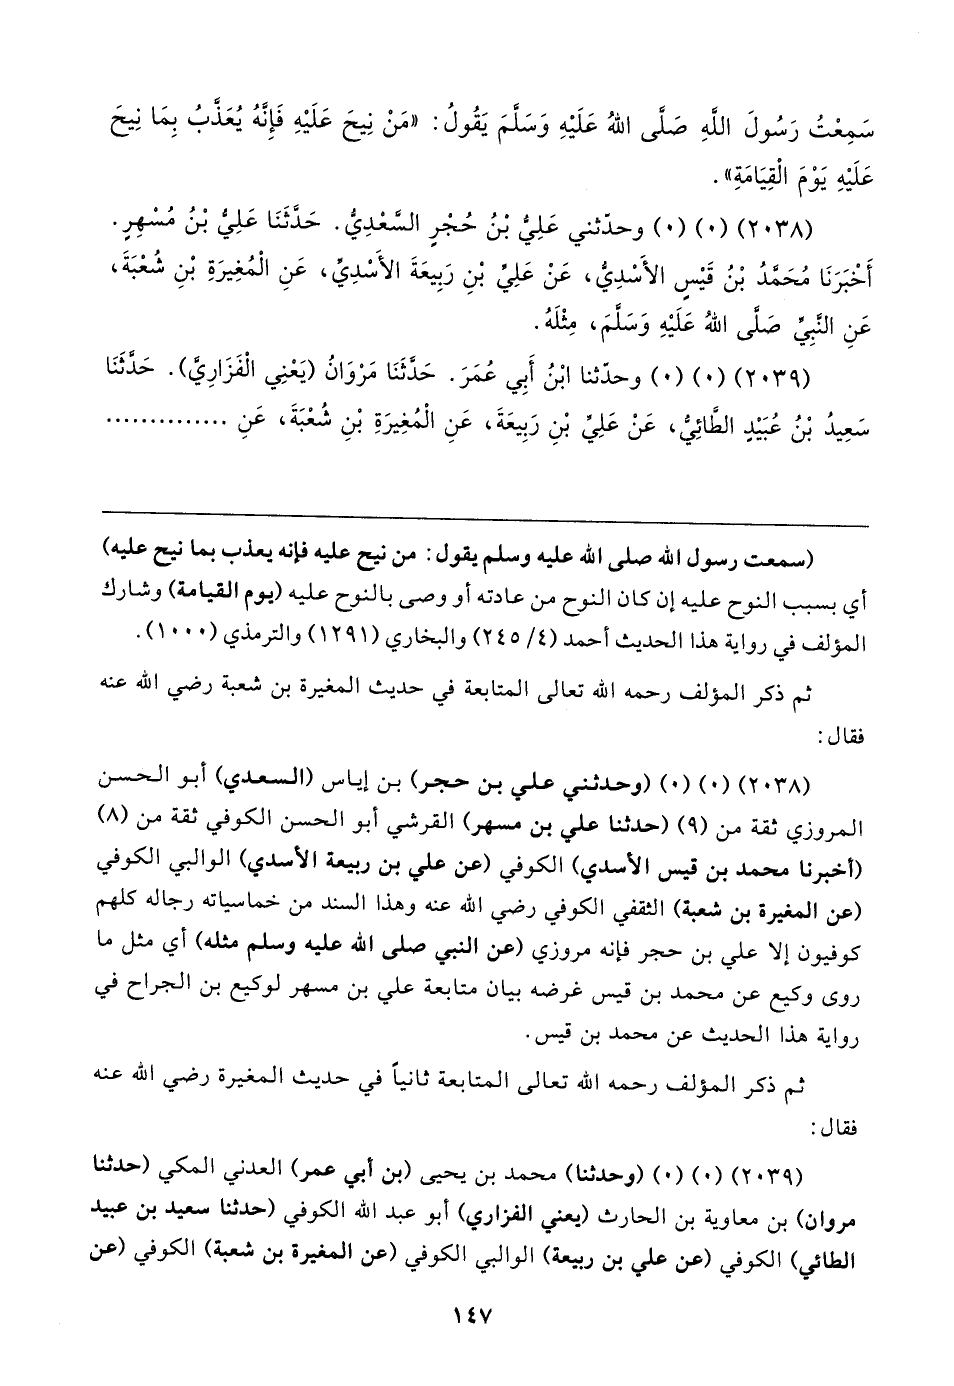 سَمِعْتُ رَسُولَ اللَّهِ صَلَّى اللهُ عَلَيْهِ وَسَلَّمَ يَقُولُ: «مَنْ نِيحَ عَلَيْهِ فَإِنَّهُ يُعَذَّبُ بِمَا نِيحَ
عَلَيْهِ يَوْمَ الْقِيَامَةِ».
(٢٠٣٨) (٠) (٠) وحدّثني عَلِيُّ بْنُ حُجْرٍ السَّعْدِيُّ. حَدَّثَنَا عَلِيُّ بْنُ مُسْهِرٍ.
أَخْبَرَنَا مُحَمَّدُ بْنُ قَيْسٍ الأَسْدِيُّ، عَنْ عَلِيِّ بْنِ رَبِيعَةَ الأَسْدِيِّ، عَنِ الْمُغِيرَةِ بْنِ شُعْبَةَ،
عَنِ النَّبِيِّ صَلَّى اللهُ عَلَيْهِ وَسَلَّمَ، مِثْلَهُ.
(٢٠٣٩) (٠) (٠) وحدّثنا ابْنُ أَبِي عُمَرَ. حَدَّثَنَا مَرْوَانُ (يَعْنِي الْفَزَارِيَّ). حَدَّثَنَا
سَعِيدُ بْنُ عُبَيْدٍ الطَّائِيُّ، عَنْ عَلِيِّ بْنِ رَبِيعَةَ، عَنِ الْمُغِيرَةِ بْنِ شُعْبَةَ، عَنِ ..............
(سمعت رسول الله صلى الله عليه وسلم يقول: من نيح عليه فإنه يعذب بما نيح عليه)
أي بسبب النوح عليه إن كان النوح من عادته أو وصى بالنوح عليه (يوم القيامة) وشارك
المؤلف في رواية هذا الحديث أحمد (٤/ ٢٤٥) والبخاري (١٢٩١) والترمذي (١٠٠٠).
ثم ذكر المؤلف رحمه الله تعالى المتابعة في حديث المغيرة بن شعبة رضي الله عنه
فقال:
(٢٠٣٨) (٠) (٠) (وحدثني علي بن حجر) بن إياس (السعدي) أبو الحسن
المروزي ثقة من (٩) (حدثنا علي بن مسهر) القرشي أبو الحسن الكوفي ثقة من (٨)
(أخبرنا محمد بن قيس الأسدي) الكوفي (عن علي بن ربيعة الأسدي) الوالبي الكوفي
(عن المغيرة بن شعبة) الثقفي الكوفي رضي الله عنه وهذا السند من خماسياته رجاله كلهم
كوفيون إلا علي بن حجر فإنه مروزي (عن النبي صلى الله عليه وسلم مثله) أي مثل ما
روى وكيع عن محمد بن قيس غرضه بيان متابعة علي بن مسهر لوكيع بن الجراح في
رواية هذا الحديث عن محمد بن قيس.
ثم ذكر المؤلف رحمه الله تعالى المتابعة ثانياً في حديث المغيرة رضي الله عنه
فقال:
(٢٠٣٩) (٠) (٠) (وحدثنا) محمد بن يحيى (بن أبي عمر) العدني المكي (حدثنا
مروان) بن معاوية بن الحارث (يعني الفزاري) أبو عبد الله الكوفي (حدثنا سعيد بن عبيد
الطائي) الكوفي (عن علي بن ربيعة) الوالبي الكوفي (عن المغيرة بن شعبة) الكوفي (عن
١٤٧